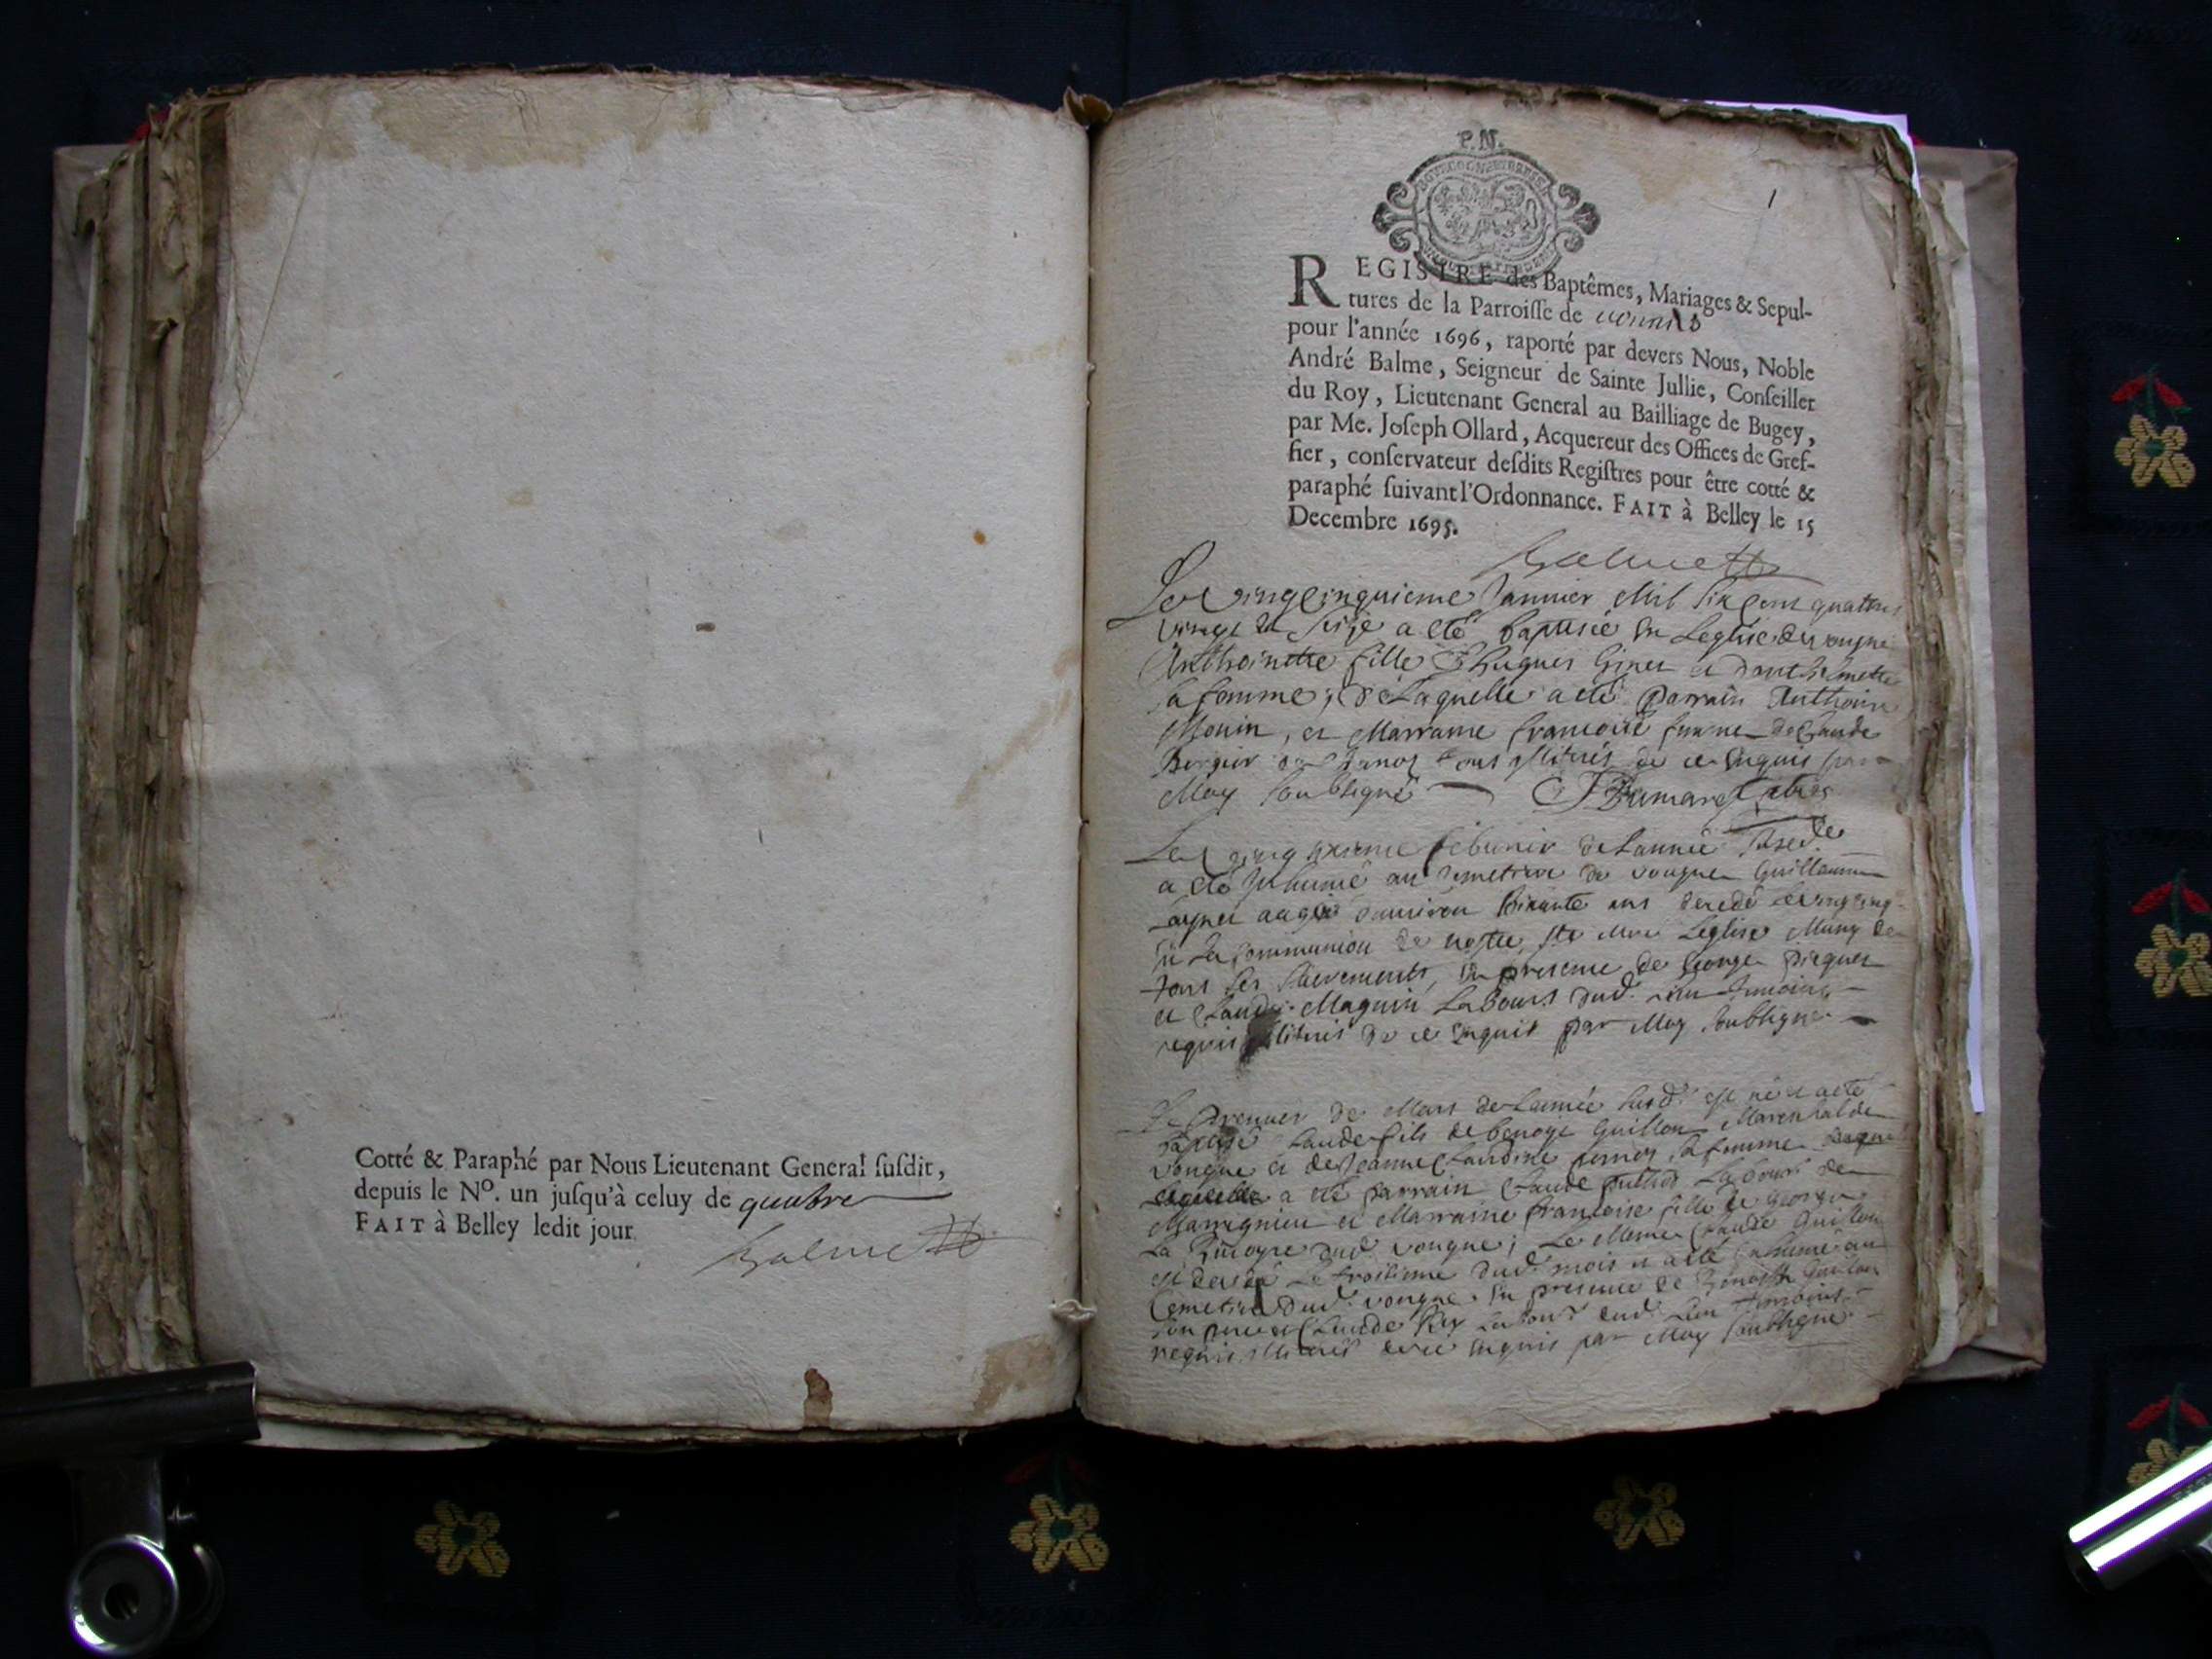 Cotté & Paraphé par Nous Lieutenant General ſuſdit,
depuis le Nº. un juſqu'à celuy de quatre
FAIT à Belley ledit jour
P.N.
1
REGISTRE des Baptêmes, Mariages & Sepul-
tures de la Parroiſſe de
pour l'année 1696, raporté par devers Nous, Noble
André Balme, Seigneur de Sainte Jullie, Conſeiller
du Roy, Lieutenant General au Bailliage de Bugey,
par Me. Joſeph Ollard, Acquereur des Offices de Gref-
fier, conſervateur deſdits Regiſtres pour être cotté &
paraphé ſuivant l'Ordonnance. FAIT à Belley le 15
Decembre 1695.
Le vingcinquieme Janvier Mil six cent quattre
vingt et seize a eté baptisée en Leglise de vongne
Anthoinette fille d'hugues et d'anthelmette
sa femme; de Laquelle a eté parrain Anthoine
Monin, et Marraine francoise femme de Claude
Bergier tous illiterés de ce enquis par
Moy soubsigné
Le febvrier de Lannée susde
a eté inhumé au cemetiere de vongne Guillaume
aagé d'environ ans decedé le
en La communion de nostre ste Mere Leglise Muny de
tous ses sacrements, en presence de George
et Claude Magnin Labours dud. lieu temoins
requis illiterés de ce enquis par Moy soubsigné
Le premier de Mars de Lannée susd. est né et a eté
baptisé Claude fils de benoyt Guillon Mareschal de
vongne et de Jeanne Claudine sa femme
a eté parrain Claude Labour de
Marignieu et Marraine francoise fille de George
La dud. vongne; Le Mesme Claude Guillon
est decedé Le troisieme dud. mois et a eté inhumé au
Cemetiere dud. vongne en presence de Benoist Guillon
son pere et Claude Rey Labour dud. Lieu temoins
requis illiterés de ce enquis par Moy soubsigné